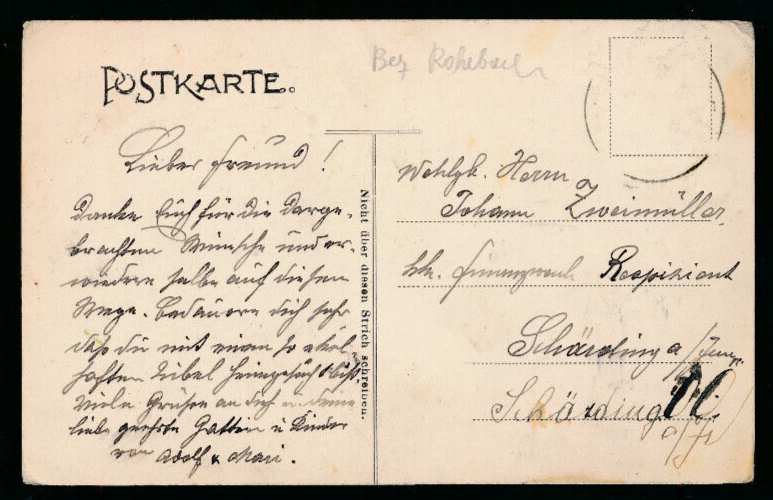 Bez Rohrbach
POSTKARTE.
Lieber Freund!
Danke Euch für die darge-
brachten Wünsche und er-
wiedere selbe auf diesem
Wege. Bedauere dich sehr
daß du mit einem so ekel-
haften Übel heimgesucht bist.
Viele Grüße an dich u. deine
liebe geehrte Gattin u Kinder
von Adolf & Mari.
Nicht über diesen Strich schreiben.
Wohlgb. Herrn
Johann Zweimüller
k.k. Finanzwach Respizient
Schärding a/Inn
Schärding